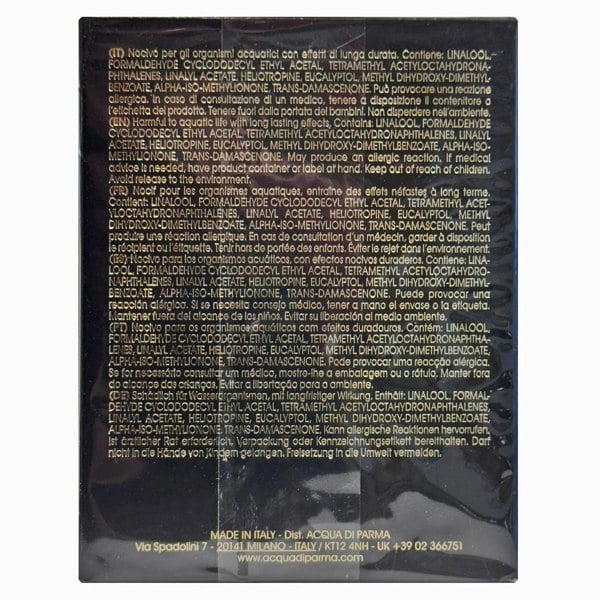 (IT) Nocivo per gli organismi acquatici con effetti di lunga durata. Contiene: LINALOOL,
FORMALDEHYDE CYCLODODECYL ETHYL ACETAL, TETRAMETHYL ACETYLOCTAHYDRONA-
PHTHALENES, LINALYL ACETATE, HELIOTROPINE, EUCALYPTOL, METHYL DIHYDROXY-DIMETHYL-
BENZOATE, ALPHA-ISO-METHYLIONONE, TRANS-DAMASCENONE. Può provocare una reazione
allergica. In caso di consultazione di un medico, tenere a disposizione il contenitore o
l'etichetta del prodotto. Tenere fuori dalla portata dei bambini. Non disperdere nell'ambiente.
(EN) Harmful to aquatic life with long lasting effects, Contains: LINALOOL, FORMALDEHYDE
CYCLODODECYL ETHYL ACETAL, TETRAMETHYL ACETYLOCTAHYDRONAPHTHALENES, LINALYL
ACETATE, HELIOTROPINE, EUCALYPTOL, METHYL DIHYDROXY-DIMETHYLBENZOATE, ALPHA-ISO-
METHYLIONONE, TRANS-DAMASCENONE. May produce an allergic reaction. If medical
advice is needed, have product container or label at hand. Keep out of reach of children.
Avoid release to the environment.
(FR) Nocif pour les organismes aquatiques, entraîne des effets néfastes à long terme.
Contient: LINALOOL, FORMALDEHYDE CYCLODODECYL ETHYL ACETAL, TETRAMETHYL ACET-
YLOCTAHYDRONAPHTHALENES, LINALYL ACETATE, HELIOTROPINE, EUCALYPTOL, METHYL
DIHYDROXY-DIMETHYLBENZOATE, ALPHA-ISO-METHYLIONONE, TRANS-DAMASCENONE. Peut
produire une réaction allergique. En cas de consultation d'un médecin, garder à disposition
le récipient ou l'étiquette. Tenir hors de portée des enfants. Éviter le rejet dans l'environnement.
(ES) Nocivo para los organismos acuáticos, con efectos nocivos duraderos. Contiene: LINA-
LOOL, FORMALDEHYDE CYCLODODECYL ETHYL ACETAL, TETRAMETHYL ACETYLOCTAHYDRO-
NAPHTHALENES, LINALYL ACETATE, HELIOTROPINE, EUCALYPTOL, METHYL DIHYDROXY-DIMETHYL-
BENZOATE, ALPHA-ISO-METHYLIONONE, TRANS-DAMASCENONE. Puede provocar una
reacción alérgica. Si se necesita consejo médico, tener a mano el envase o la etiqueta.
Mantener fuera del alcance de los niños. Evitar su liberación al medio ambiente.
(PT) Nocivo para os organismos aquáticos com efeitos duradouros. Contém: LINALOOL,
FORMALDEHYDE CYCLODODECYL ETHYL ACETAL, TETRAMETHYL ACETYLOCTAHYDRONAPHTHA-
LENES, LINALYL ACETATE, HELIOTROPINE, EUCALYPTOL, METHYL DIHYDROXY-DIMETHYLBENZOATE,
ALPHA-ISO-METHYLIONONE, TRANS-DAMASCENONE. Pode provocar uma reacção alérgica.
Se for necessário consultar um médico, mostre-lhe a embalagem ou o rótulo. Manter fora
do alcance das crianças. Evitar a libertação para o ambiente.
(DE) Schädlich für Wasserorganismen, mit langfristiger Wirkung. Enthält: LINALOOL, FORMAL-
DEHYDE CYCLODODECYL ETHYL ACETAL, TETRAMETHYL ACETYLOCTAHYDRONAPHTHALENES,
LINALYL ACETATE, HELIOTROPINE, EUCALYPTOL, METHYL DIHYDROXY-DIMETHYLBENZOATE,
ALPHA-ISO-METHYLIONONE, TRANS-DAMASCENONE. Kann allergische Reaktionen hervorrufen.
Ist ärztlicher Rat erforderlich, Verpackung oder Kennzeichnungsetikett bereithalten. Darf
nicht in die Hände von Kindern gelangen. Freisetzung in die Umwelt vermeiden.
MADE IN ITALY - Dist. ACQUA DI PARMA
Via Spadolini 7 - 20141 MILANO - ITALY / KT12 4NH - UK +39 02 366751
www.acquadiparma.com